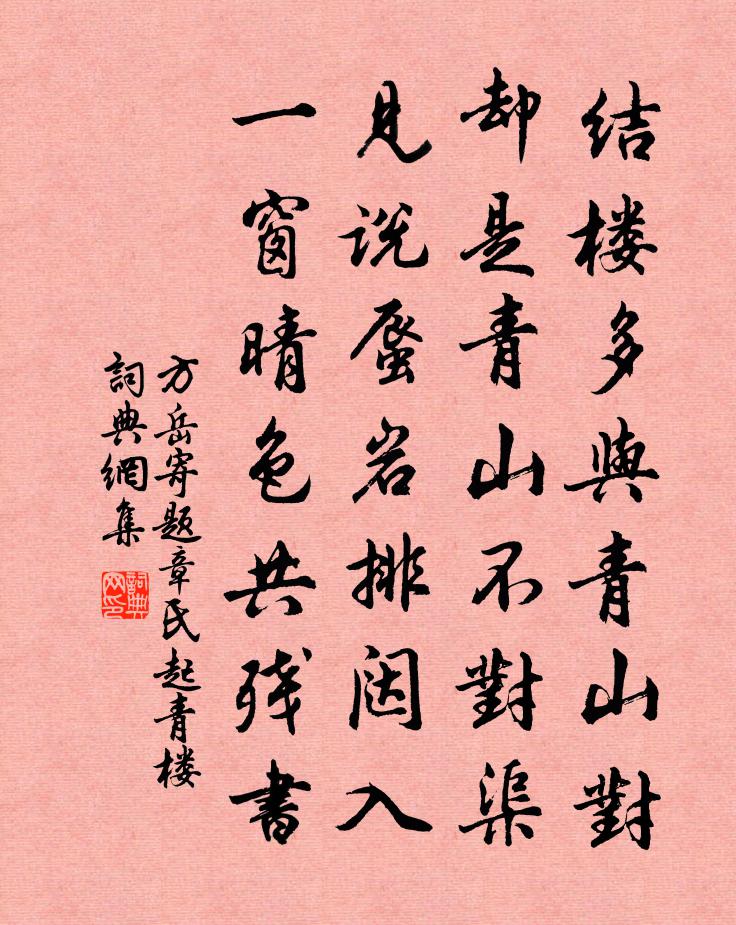 结楼多與青山對
却是青山不對渠
見说蜃岩排闼入
一窗晴色共残書
方岳寄题章氏起青楼
詞典網集
詞典网印